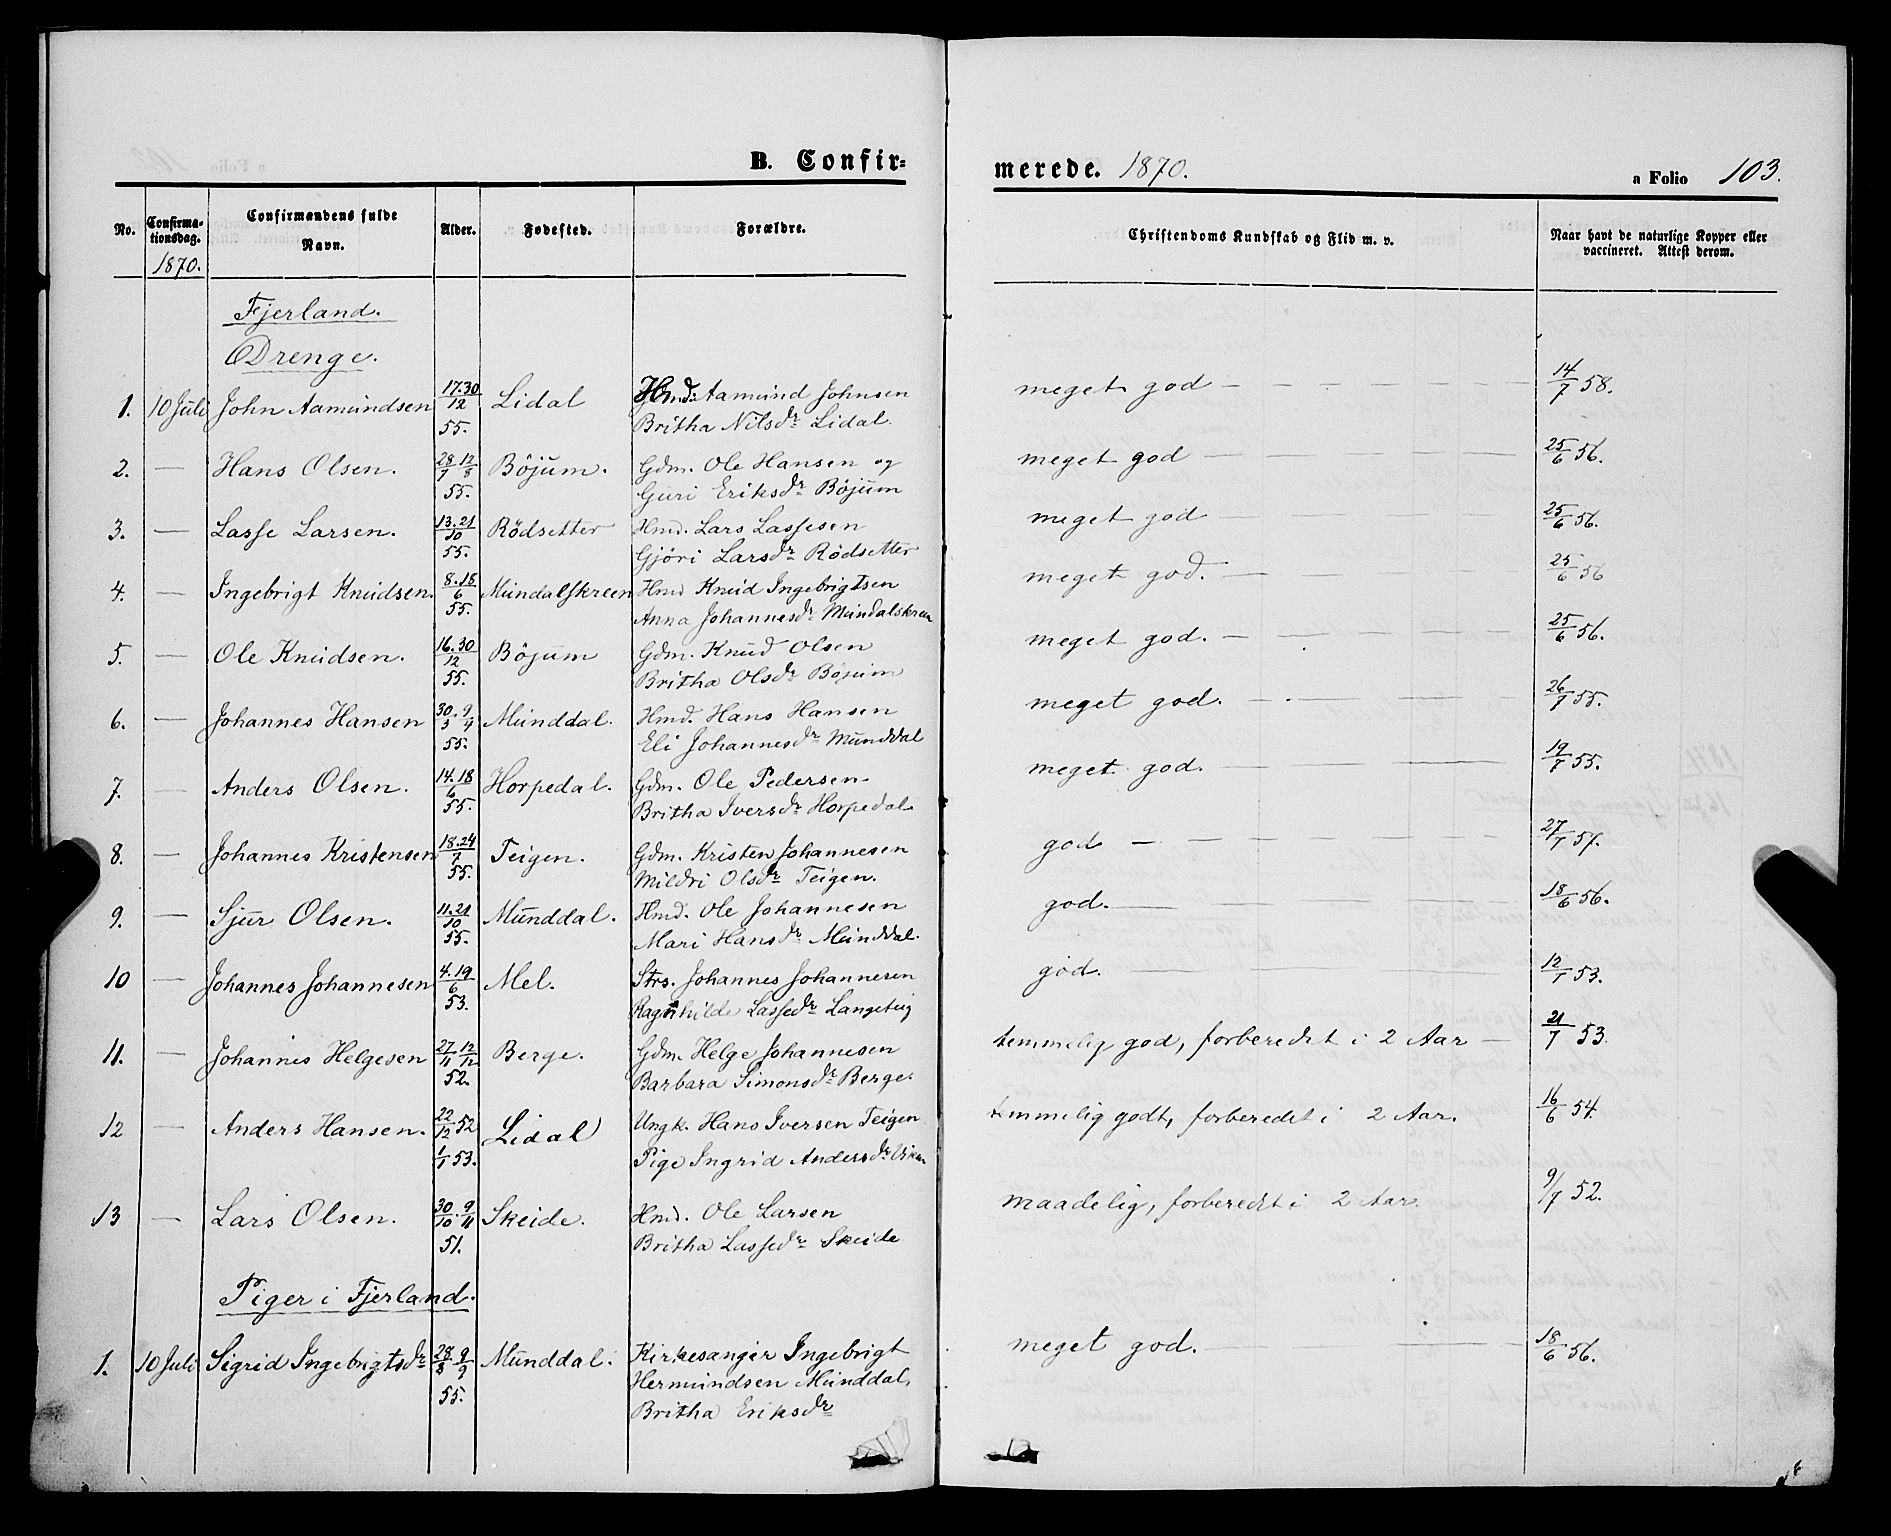 B. Confir-
merede. 1870.
a Folio 103.
No. Confirma-tionsdag. Confirmandens fulde Navn. Alder. Fødested. Forældre. Christendoms Kundskab og Flid m. v. Naar havt de naturlige Kopper eller vaccineret. Attest derom.
1870.
Fjerland.
Drenge.
1. 10 Juli John Aamundsen 17.30/12 55. Lidal Hmd. Aamund Johnsen meget god — 14/7 58.
Britha Nilsdr Lidal.
2. — Hans Olsen. 28/7 12/8 55. Böjum. Gdm. Ole Hansen og meget god — 25/6 56.
Guri Eriksdr Böjum
3. — Lasse Larsen. 13.21/10 55. Rödsetter Hmd. Lars Lassesen meget god — 25/6 56.
Gjöri Larsdr Rödsetter
4. — Ingebrigt Knudsen. 8.18/6 55. Mundalskreen Hmd Knud Ingebrigtsen meget god. — 25/6 56
Anna Johannesdr Mundalskreen
5. — Ole Knudsen. 16.30/12 55. Böjum Gdm. Knud Olsen meget god. — 25/6 56.
Britha Olsdr Böjum
6. — Johannes Hansen 30/3 9/4 55. Munddal. Hmd. Hans Hansen meget god. — 26/7 55.
Eli Johannesdr Munddal
7. — Anders Olsen. 14.18/6 55. Horpedal. Gdm. Ole Pedersen meget god. — 19/7 55.
Britha Iversdr Horpedal
8. — Johannes Kristensen 18.24/7 55. Teigen. Gdm. Kristen Johannesen god — 27/7 57.
Mildri Olsdr Teigen.
9. — Sjur Olsen. 11.21/10 55. Munddal. Hmd. Ole Johannesen god. — 18/6 56.
Mari Hansdr Munddal.
10 — Johannes Johannesen 4.19/6 53. Mel. Strs. Johannes Johannesen god. — 12/7 53.
Ragnhilde Lassedr Langeteig
11. — Johannes Helgesen 27/11 12/12 52. Berge. Gdm. Helge Johannesen temmelig god, forberedet i 2 Aar — 21/7 53.
Barbara Simonsdr Berge.
12 — Anders Hansen. 22/12 52 1/1 53. Lidal Ungk. Hans Iversen Teigen temmelig godt, forberedet i 2 Aar. 16/6 54.
Pige Ingrid Andersdr
13 — Lars Olsen. 30/10. 9/11 51. Skeide. Hmd. Ole Larsen maadelig, forberedet i 2 Aar. 9/7 52.
Britha Lassedr Skeide
Piger i Fjerland.
1. 10 Juli Sigrid Ingebrigtsdr 28/8 9/9 55. Munddal. Kirkesanger Ingebrigt meget god. — 18/6 56.
Hermundsen Munddal,
Britha Eriksdr